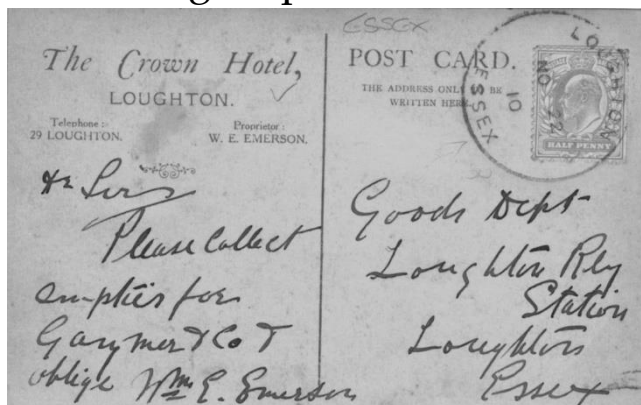 ESSEX
The Crown Hotel,
LOUGHTON.
Telephone :
29 LOUGHTON.
Proprietor :
W. E. EMERSON.
Dr Sirs
Please Collect
empties for
Garymer & Co &
oblige Wm E. Emerson
POST CARD.
THE ADDRESS ONLY TO BE
WRITTEN HERE.
LOUGHTON
ESSEX
10
NO 22
HALF PENNY
Goods Dept
Loughton Rly
Station
Loughton
Essex